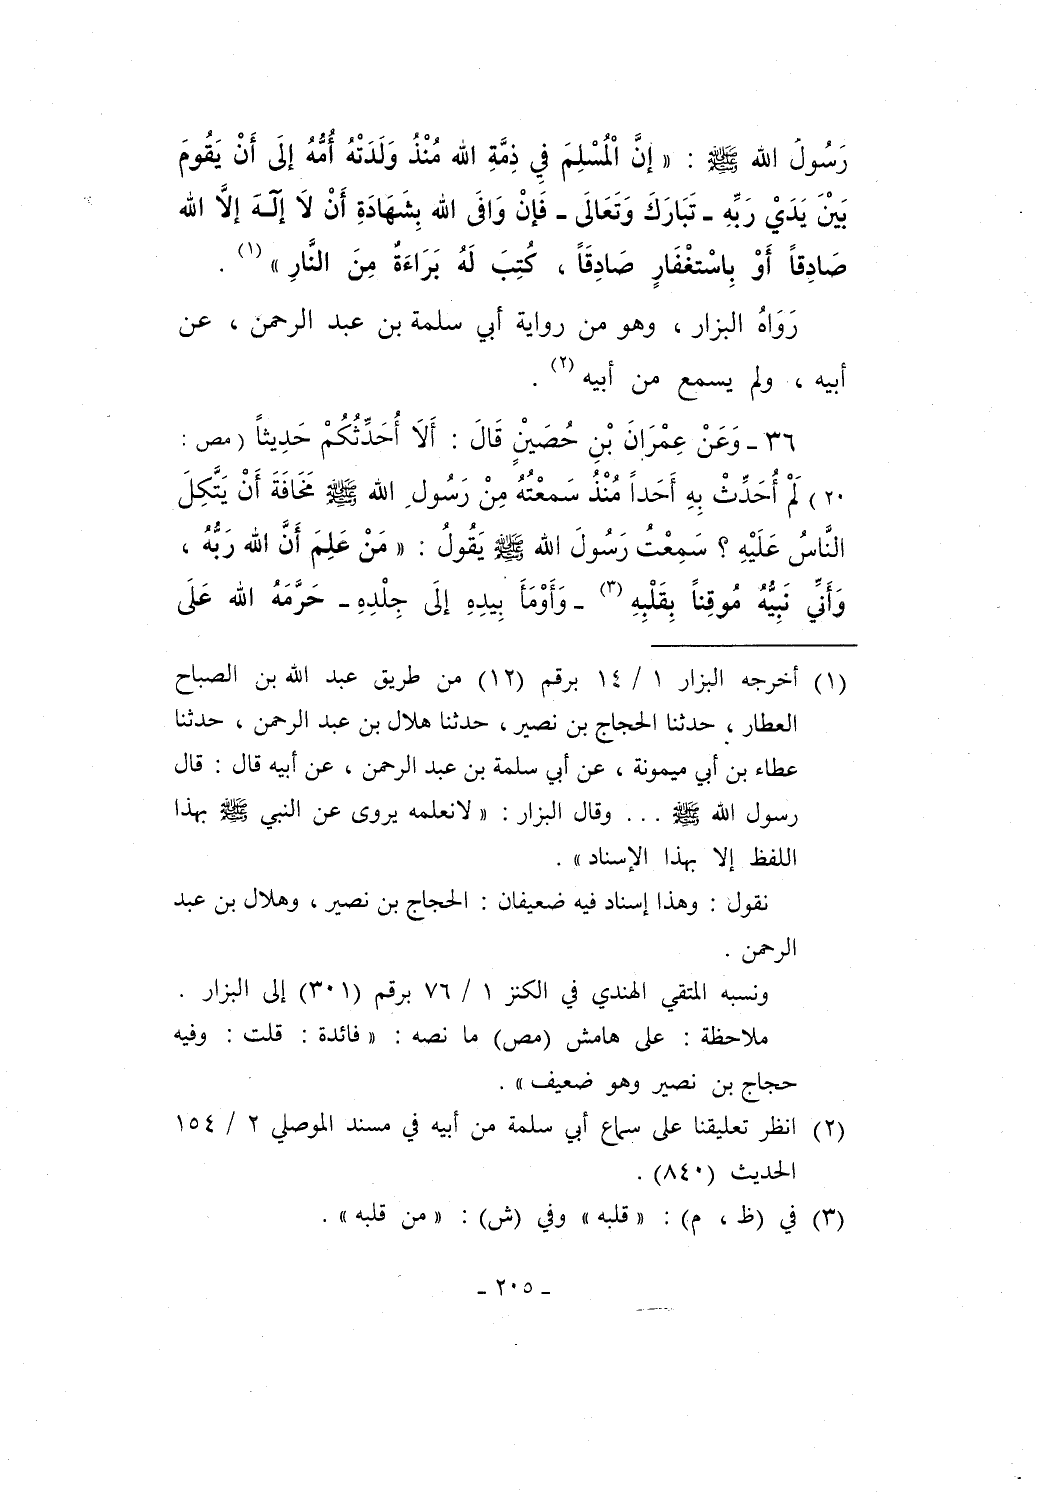 رَسُولَ الله ﷺ : « إنَّ الْمُسْلِمَ فِي ذِمَّةِ الله مُنْذُ وَلَدَتْهُ أُمُّهُ إلَى أَنْ يَقُومَ
بَيْنَ يَدَيْ رَبِّهِ ـ تَبَارَكَ وَتَعَالَى ـ فَإنْ وَافَى الله بِشَهَادَةِ أَنْ لَا إلَـٰهَ إلاَّ الله
صَادِقاً أَوْ بِاسْتغْفَارٍ صَادِقَاً ، كُتِبَ لَهُ بَرَاءَةٌ مِنَ النَّارِ » (١) .
رَوَاهُ البزار ، وهو من رواية أبي سلمة بن عبد الرحمن ، عن
أبيه ، ولم يسمع من أبيه (٢) .
٣٦ ـ وَعَنْ عِمْرَانَ بْنِ حُصَيْنٍ قَالَ : أَلَا أُحَدِّثُكُمْ حَدِيثاً ( مص :
٢٠ ) لَمْ أُحَدِّثْ بِهِ أَحَداً مُنْذُ سَمعْتُهُ مِنْ رَسُولِ الله ﷺ مَخَافَةَ أَنْ يَتَّكِلَ
النَّاسُ عَلَيْهِ ؟ سَمِعْتُ رَسُولَ الله ﷺ يَقُولُ : « مَنْ عَلِمَ أَنَّ الله رَبُّهُ ،
وَأَنِّي نَبِيُّهُ مُوقِناً بِقَلْبِهِ (٣) ـ وَأَوْمَأَ بِيدِهِ إلَى جِلْدِهِ ـ حَرَّمَهُ الله عَلَى
(١) أخرجه البزار ١ / ١٤ برقم (١٢) من طريق عبد الله بن الصباح
العطار ، حدثنا الحجاج بن نصير ، حدثنا هلال بن عبد الرحمن ، حدثنا
عطاء بن أبي ميمونة ، عن أبي سلمة بن عبد الرحمن ، عن أبيه قال : قال
رسول الله ﷺ ... وقال البزار : « لانعلمه يروى عن النبي ﷺ بهذا
اللفظ إلا بهذا الإسناد » .
نقول : وهذا إسناد فيه ضعيفان : الحجاج بن نصير ، وهلال بن عبد
الرحمن .
ونسبه المتقي الهندي في الكنز ١ / ٧٦ برقم (٣٠١) إلى البزار .
ملاحظة : على هامش (مص) ما نصه : « فائدة : قلت : وفيه
حجاج بن نصير وهو ضعيف » .
(٢) انظر تعليقنا على سماع أبي سلمة من أبيه في مسند الموصلي ٢ / ١٥٤
الحديث (٨٤٠) .
(٣) في (ظ ، م) : « قلبه » وفي (ش) : « من قلبه » .
ـ ٢٠٥ ـ